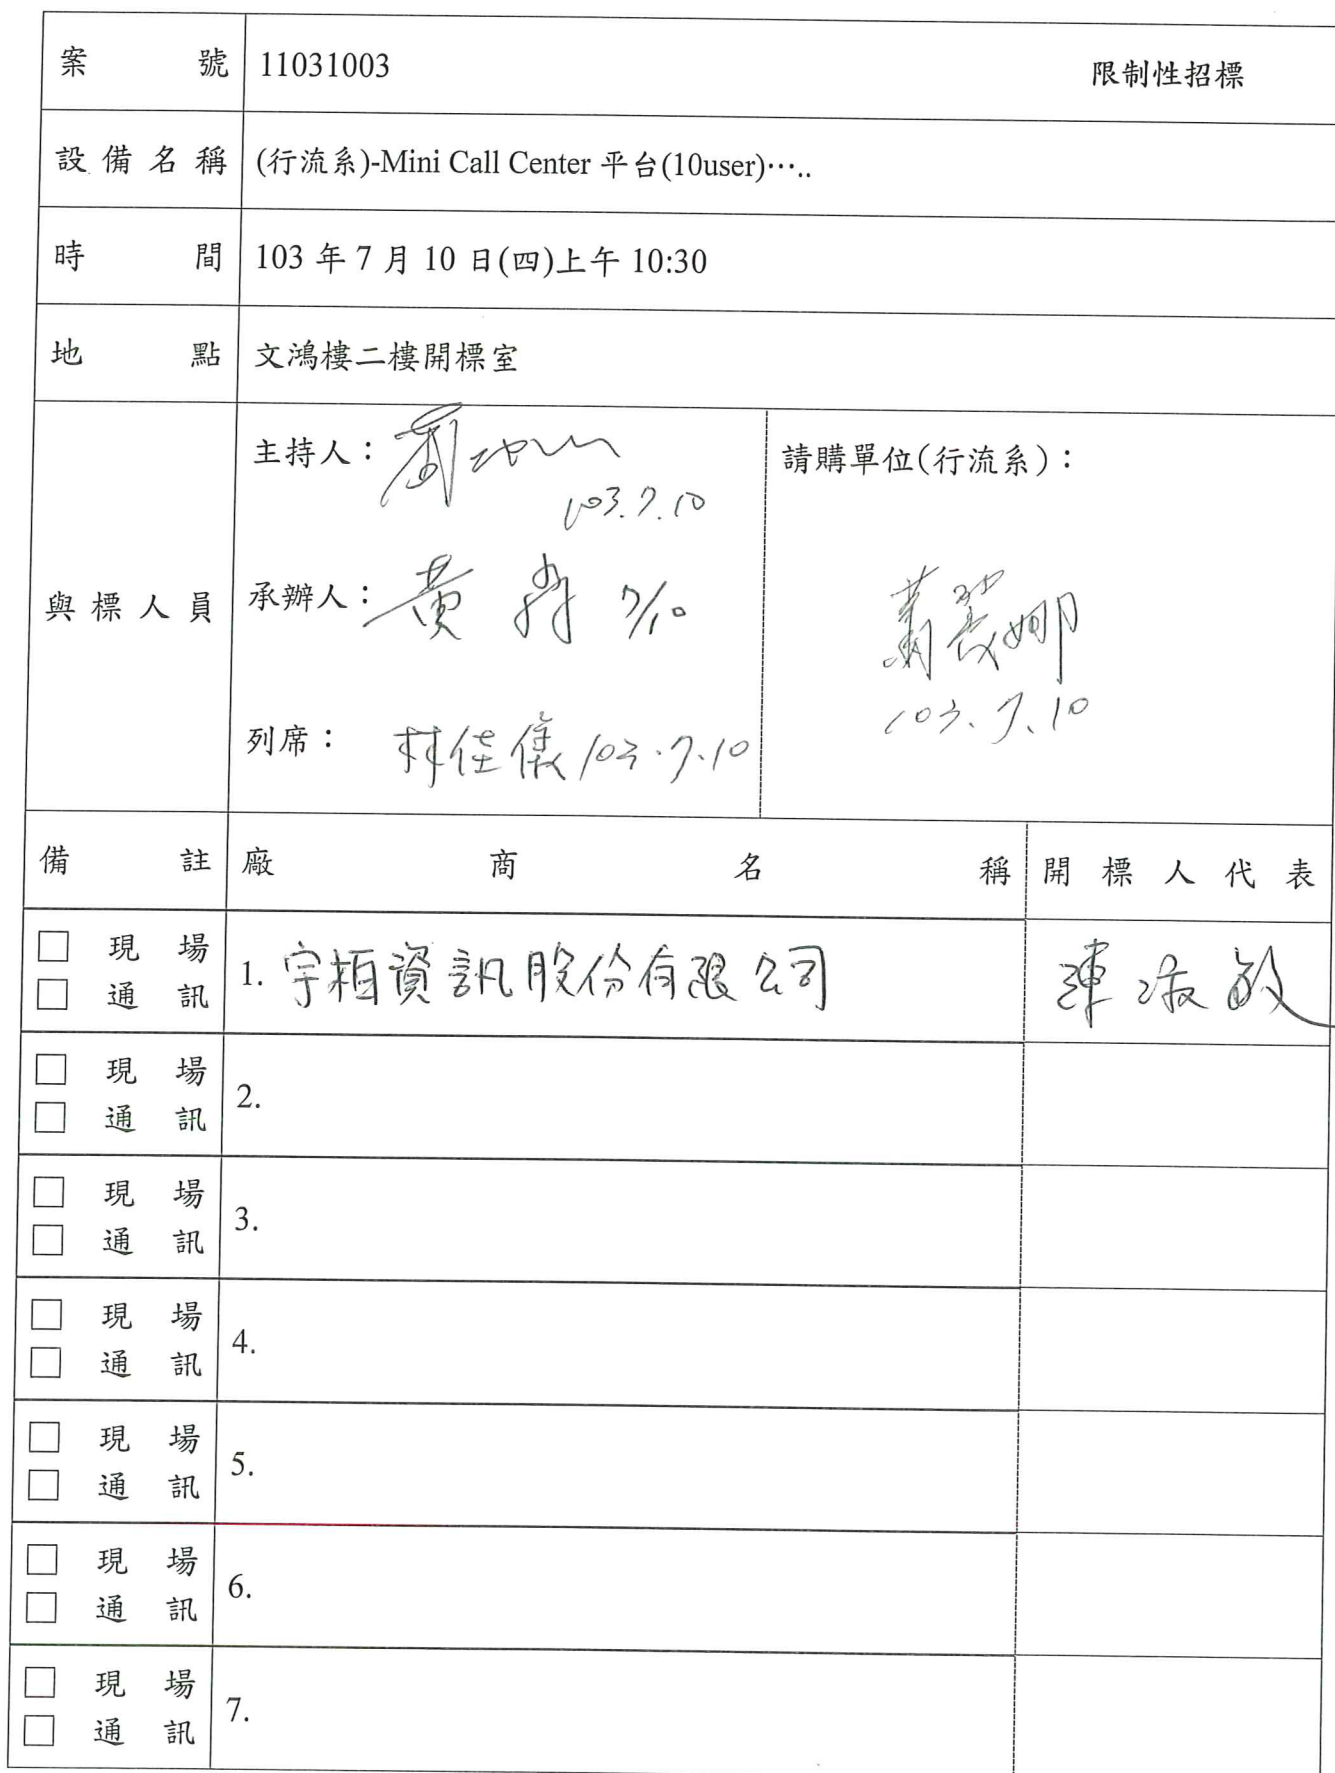 案號 11031003 限制性招標
設備名稱 (行流系)-Mini Call Center 平台(10user)…..
時間 103 年 7 月 10 日(四)上午 10:30
地點 文鴻樓二樓開標室
與標人員
主持人：
103.7.10
承辦人：黃 7/10
列席：林佳儀 103.7.10
請購單位(行流系)：
蕭 娜
103.7.10
備註 廠商名稱 開標人代表
□ 現場
□ 通訊
1. 宇柏資訊股份有限公司 陳淑敏
□ 現場
□ 通訊
2.
□ 現場
□ 通訊
3.
□ 現場
□ 通訊
4.
□ 現場
□ 通訊
5.
□ 現場
□ 通訊
6.
□ 現場
□ 通訊
7.